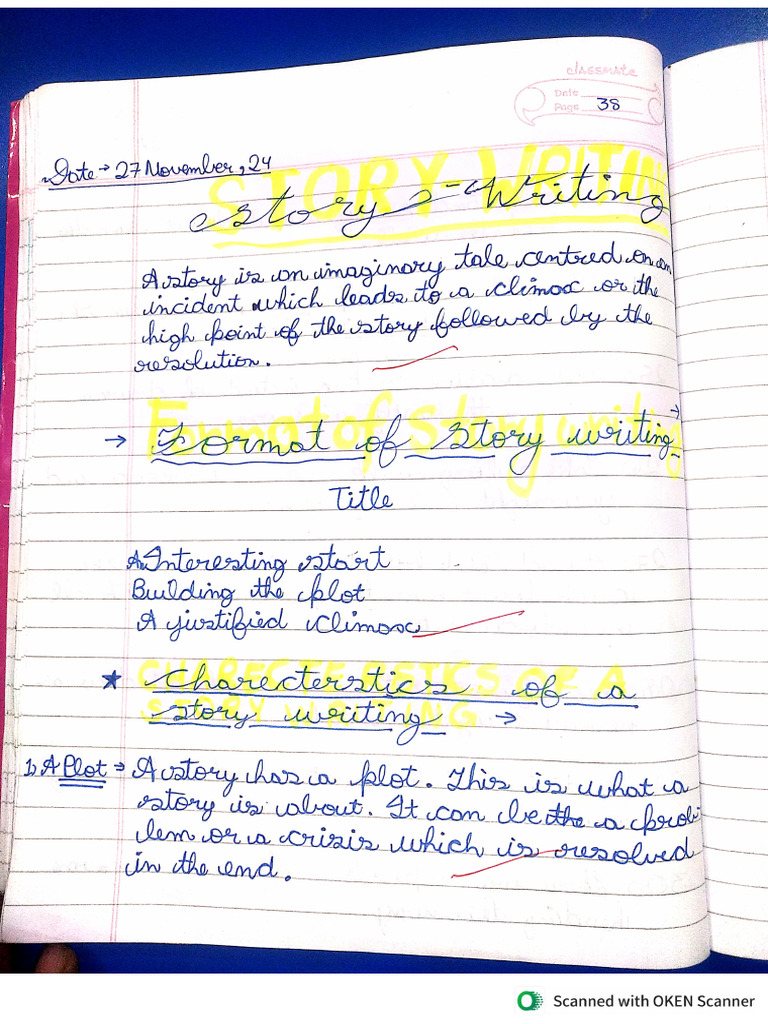 classmate
Date
Page 38
Date → 27 November, 24
STORY-WRITING
Story - Writing
A story is an imaginary tale centred on an
incident which leads to a climax or the
high point of the story followed by the
resolution.
Format of Story writing
→ Format of Story writing →
Title
An Interesting start
Building the plot
A justified climax
CHARECTERISTICS OF A
STORY WRITING
★ Charecterstics of a
story writing →
1) A Plot → A story has a plot. This is what a
story is about. It can be the a prob
lem or a crisis which is resolved
in the end.
Scanned with OKEN Scanner